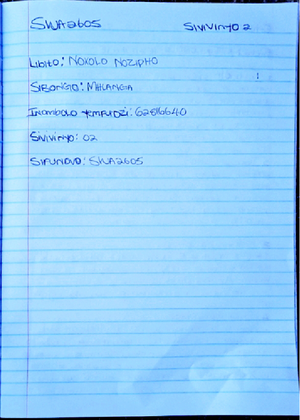 SWA2605 SIVIVINYO 2
LIBITO: NOXOLO NOZIPHO
SIBONGO: MHLANGA
INOMBOLO YEMFUNDZI:
SIVIVINYO: 02
SIFUNDVO: SWA2605